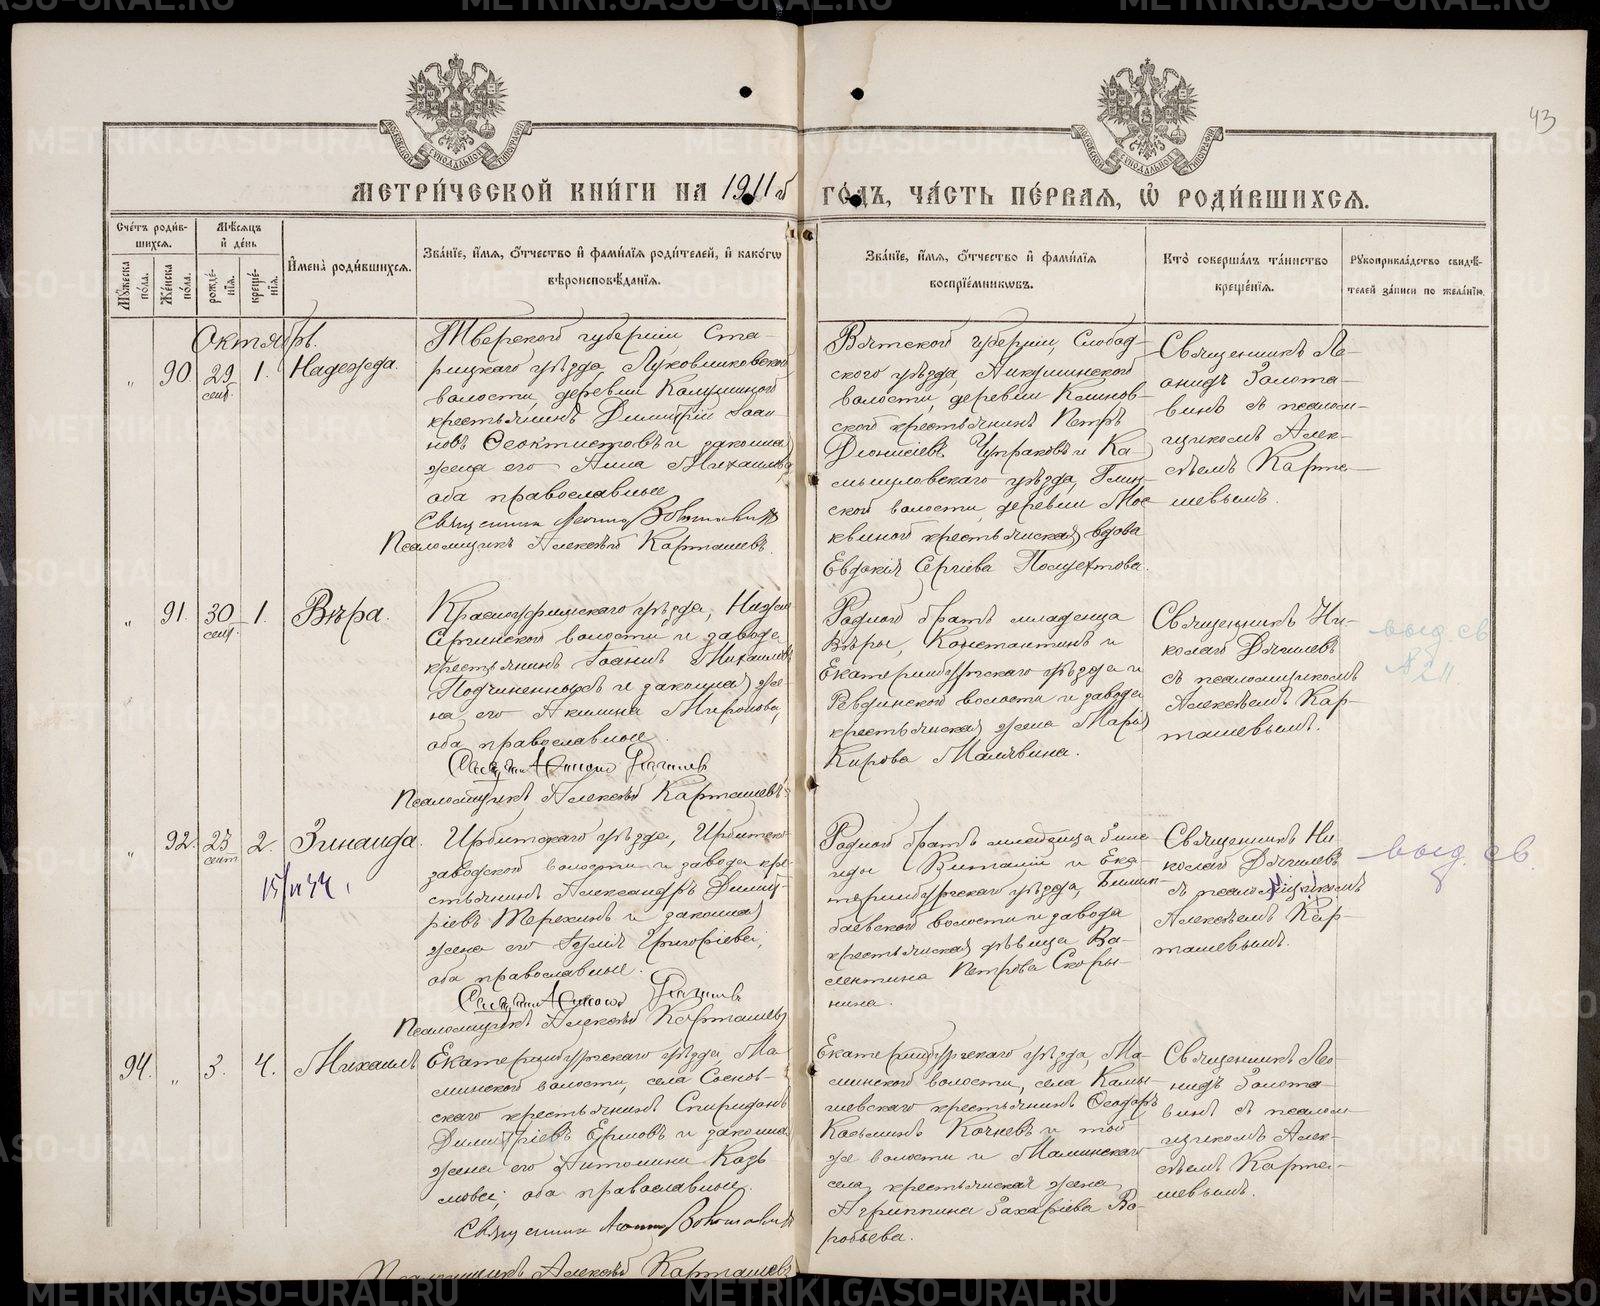 METRIKI.GASO-URAL.RU
43
МОСКОВСКОЙ СѴНОДАЛЬНОЙ ТИПОГРАФІИ
МОСКОВСКОЙ СѴНОДАЛЬНОЙ ТИПОГРАФІИ
МЕТРИ́ЧЕСКОЙ КНИ́ГИ НА 1911 г҃ ГО́ДЪ, ЧА́СТЬ ПЕ́РВАЯ, Ѡ҆ РОДИ́ВШИХСЯ.
Сче́тъ роди́в-
шихся.
Мѣ́сяцъ
и҆ де́нь
Мꙋ́жеска по́ла.
Же́нска по́ла.
рожде́-
нїя.
креще́-
нїя.
И҆мена̀ роди́вшихся.
Зва́нїе, и҆́мя, ѻ҆́тчество и҆ фами́лїя роди́телей, и҆ како́гѡ
вѣроисповѣ́данїя.
Зва́нїе, и҆́мя, ѻ҆́тчество и҆ фами́лїя
воспрїе́мникѡвъ.
Кто̀ соверша́лъ та́инство
креще́нїя.
Рꙋкоприкла́дство свидѣ́-
телей за́писи по жела́нїю.
Октябрь.
„ 90 29 сент. 1. Надежда.
Тверской губерніи, Ста-
рицкаго уѣзда, Луковниковской
волости, деревни
крестьянинъ Димитрій Іоан-
новъ Ѳеоктистовъ и законная
жена его Анна Михаилова,
оба православные
Священникъ Леонидъ
Псаломщикъ Алексѣй Карташевъ.
Вятской губерніи, Слобод-
ского уѣзда,
волости, деревни
ской крестьянинъ Петръ
Діонисіевъ и Ка-
мышловскаго уѣзда,
ской волости, деревни Мос-
квиной крестьянская вдова
Евдокія Сергіева
Священникъ Ле-
онидъ Золота-
винъ съ псалом-
щикомъ Алек-
сѣемъ Карта-
шевымъ.
„ 91. 30 сент. 1. Вѣра.
Красноуфимскаго уѣзда, Нижне
Сергинской волости и завода
крестьянинъ Іоаннъ Михаиловъ
Подчиненныхъ и законная же-
на его Акилина Миронова,
оба православные.
Псаломщикъ Алексѣй Карташевъ.
Родной братъ младенца
Вѣры, Константинъ и
Екатеринбургскаго уѣзда и
Ревдинской волости и завода
крестьянская жена Марія
Кирова Малявина.
Священникъ Ни-
колай Дягилевъ
съ псаломщикомъ
Алексѣемъ Кар-
ташевымъ.
выд. св
№ 211.
„ 92. 23 сент. 2. Зинаида.
Ирбитскаго уѣзда, Ирбитско-
заводской волости и завода кре-
стьянинъ Александръ Димит-
ріевъ Терехинъ и законная
жена его Юлія Григоріева,
оба православные.
Псаломщикъ Алексѣй Карташевъ
Родной братъ младенца Зина-
иды Виталій и Ека-
теринбургскаго уѣзда, Билим-
баевской волости и завода
крестьянская дѣвица Ва-
лентина Петрова Скоры-
нина.
Священникъ Ни-
колай Дягилевъ
съ псаломщикомъ
Алексѣемъ Кар-
ташевымъ.
выд. св.
94. „ 3. 4. Михаилъ
Екатеринбургскаго уѣзда, Ма-
минской волости, села Соснов-
скаго крестьянинъ Спиридонъ
Димитріевъ Ершовъ и законная
жена его Антонина Козь-
мова, оба православные.
Священникъ Леонидъ
Псаломщикъ Алексѣй Карташевъ
Екатеринбургскаго уѣзда, Ма-
минской волости, села Камы-
шевскаго крестьянинъ Ѳеодоръ
Козьминъ Кочневъ и той
же волости и Маминскаго
села, крестьянская жена
Агриппина Захаріева Во-
робьева.
Священникъ Лео-
нидъ Золота-
винъ съ псалом-
щикомъ Алек-
сѣемъ Карта-
шевымъ.